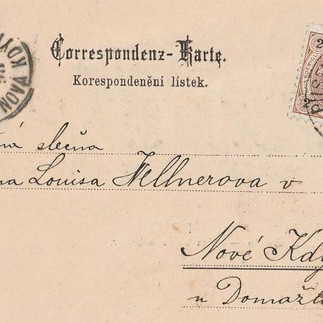 Correspondenz-Karte.
Korespondenční lístek.
KDY
ná slečna
na Louisa Wellnerova v
Nové Kdy
u Domažl